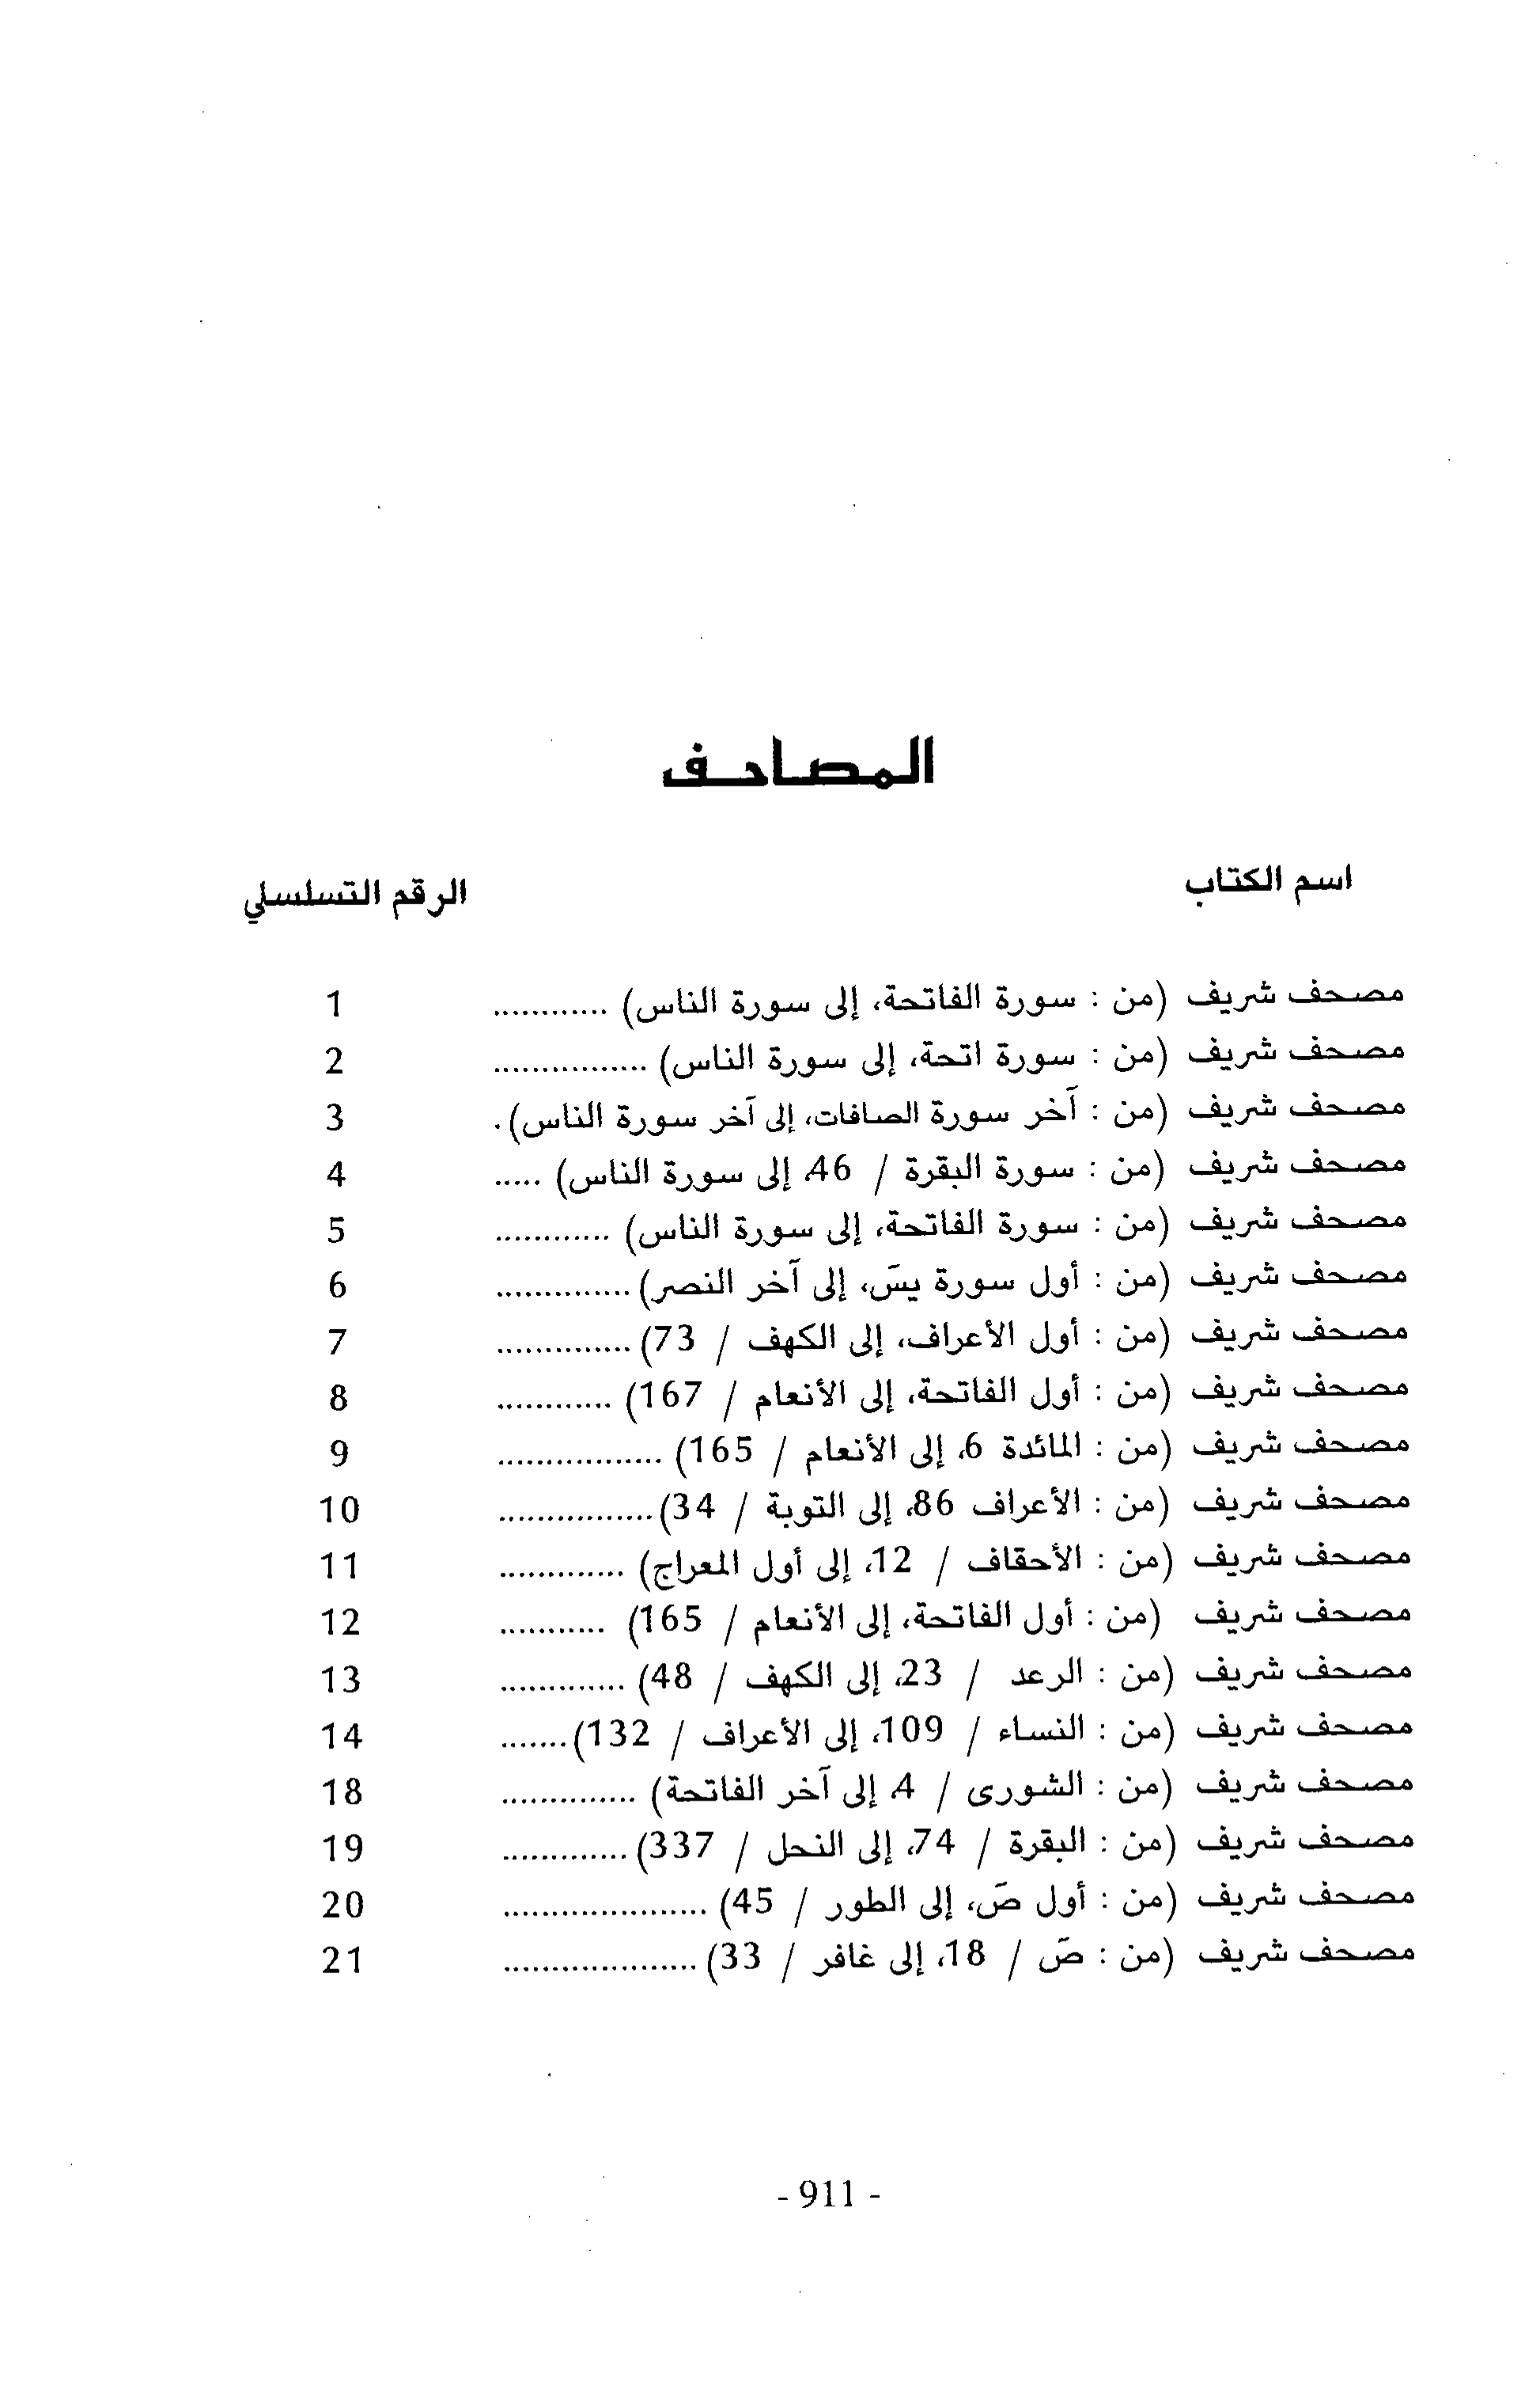 المصاحف
اسم الكتاب الرقم التسلسلي
مصحف شريف (من : سورة الفاتحة، إلى سورة الناس) ............ 1
مصحف شريف (من : سورة اتحة، إلى سورة الناس) ................ 2
مصحف شريف (من : آخر سورة الصافات، إلى آخر سورة الناس). 3
مصحف شريف (من : سورة البقرة / 46، إلى سورة الناس) ..... 4
مصحف شريف (من : سورة الفاتحة، إلى سورة الناس) ............ 5
مصحف شريف (من : أول سورة يسَ، إلى آخر النصر) .............. 6
مصحف شريف (من : أول الأعراف، إلى الكهف / 73) .............. 7
مصحف شريف (من : أول الفاتحة، إلى الأنعام / 167) ............ 8
مصحف شريف (من : المائدة 6، إلى الأنعام / 165) ................. 9
مصحف شريف (من : الأعراف 86، إلى التوبة / 34)................ 10
مصحف شريف (من : الأحقاف / 12، إلى أول المعراج) ............. 11
مصحف شريف (من : أول الفاتحة، إلى الأنعام / 165) ........... 12
مصحف شريف (من : الرعد / 23، إلى الكهف / 48) ............. 13
مصحف شريف (من : النساء / 109، إلى الأعراف / 132)....... 14
مصحف شريف (من : الشورى / 4، إلى آخر الفاتحة) .............. 18
مصحف شريف (من : البقرة / 74، إلى النحل / 337) ............. 19
مصحف شريف (من : أول صَ، إلى الطور / 45) ..................... 20
مصحف شريف (من : صَ / 18، إلى غافر / 33) .................... 21
- 911 -